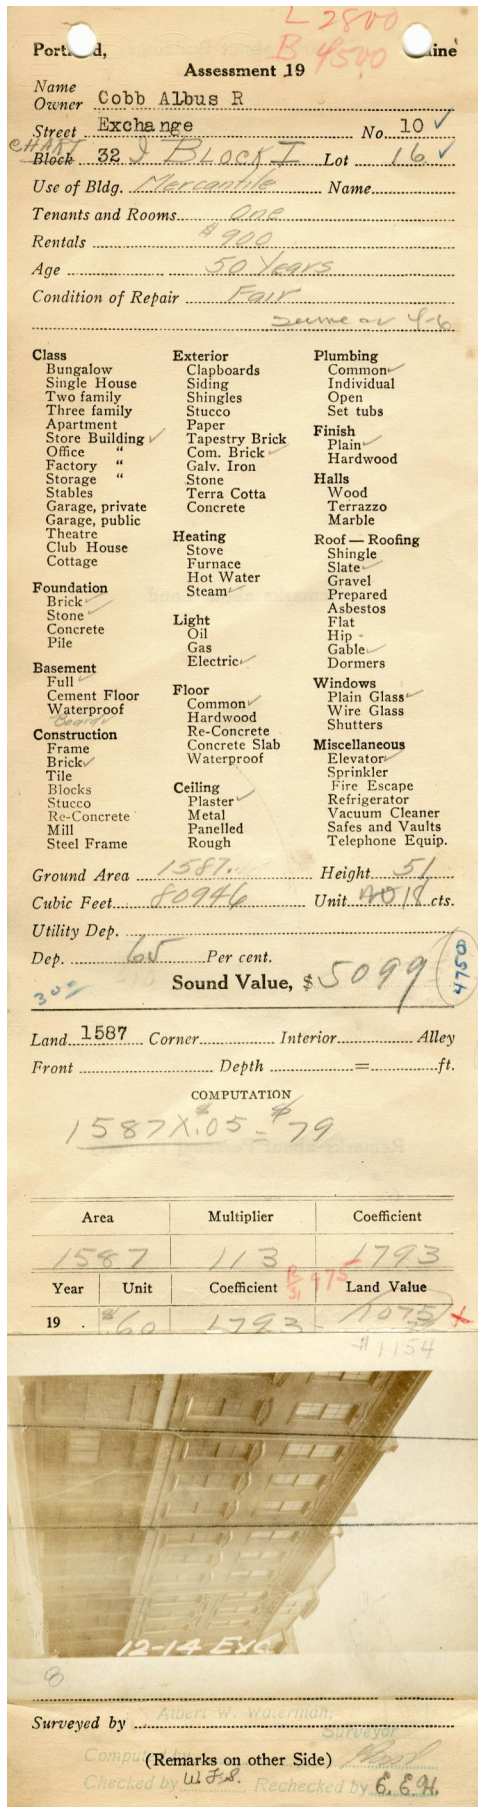 L 2800
Portland, Maine
B 4500
Assessment 19
Name
Owner Cobb Albus R
Street Exchange No. 10 ✓
CHART
Block 32 I BLOCK I Lot 16 ✓
Use of Bldg. Mercantile Name
Tenants and Rooms One
Rentals $900
Age 50 Years
Condition of Repair Fair
same as 4-6
Class
Bungalow
Single House
Two family
Three family
Apartment
Store Building ✓
Office "
Factory "
Storage "
Stables
Garage, private
Garage, public
Theatre
Club House
Cottage
Foundation
Brick ✓
Stone ✓
Concrete
Pile
Basement
Full ✓
Cement Floor
Waterproof
Boards
Construction
Frame
Brick ✓
Tile
Blocks
Stucco
Re-Concrete
Mill
Steel Frame
Exterior
Clapboards
Siding
Shingles
Stucco
Paper
Tapestry Brick
Com. Brick ✓
Galv. Iron
Stone
Terra Cotta
Concrete
Heating
Stove
Furnace
Hot Water
Steam ✓
Light
Oil
Gas
Electric ✓
Floor
Common ✓
Hardwood
Re-Concrete
Concrete Slab
Waterproof
Ceiling
Plaster ✓
Metal
Panelled
Rough
Plumbing
Common ✓
Individual
Open
Set tubs
Finish
Plain ✓
Hardwood
Halls
Wood
Terrazzo
Marble
Roof — Roofing
Shingle
Slate ✓
Gravel
Prepared
Asbestos
Flat
Hip
Gable ✓
Dormers
Windows
Plain Glass ✓
Wire Glass
Shutters
Miscellaneous
Elevator ✓
Sprinkler
Fire Escape
Refrigerator
Vacuum Cleaner
Safes and Vaults
Telephone Equip.
Ground Area 1587. Height 51
Cubic Feet 80946 Unit 18 cts.
Utility Dep.
Dep. 65 Per cent.
Sound Value, $ 5099 4750
Land 1587 Corner Interior Alley
Front Depth = ft.
COMPUTATION
1587 X $.05 = $79
Area Multiplier Coefficient
1587 113 1793
Year Unit Coefficient Land Value
19 $.60 1793 1075 X
$1154
12-14 EXC
8
Albert W. Waterman,
Surveyed by
Surveyor
Computed by
(Remarks on other Side)
Checked by W.F.S. Rechecked by E. E. H.